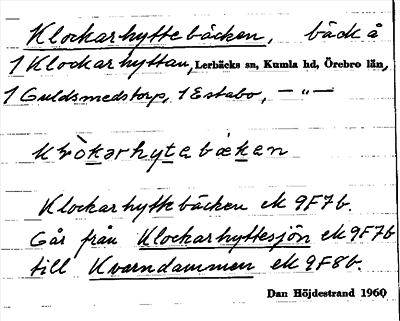 Klockarhyttebäcken, bäck å
1 Klockarhyttan, Lerbäcks sn, Kumla hd, Örebro län,
1 Guldsmedstorp, 1 Estabo, — „ —
Klockarhyttbäcken ek 9F7b.
Går från Klockarhyttesjön ek 9F7b
till Kvarndammen ek 9F8b.
Dan Höjdestrand 1960